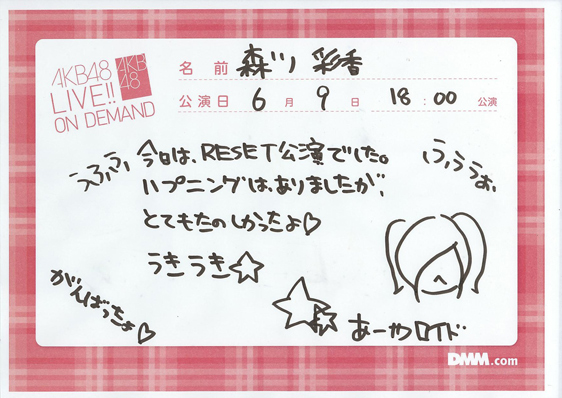 AKB48
LIVE!!
ON DEMAND
AKB
48
名前 森川 彩香
公演日 6月9日 18:00 公演
うふふ
今日は、RESET公演でした。
ハプニングは、ありましたが、
とてもたのしかったよ♡
うきうき☆
ふぅうぉ
がんばっちょ♡
あーやロイド
DMM.com